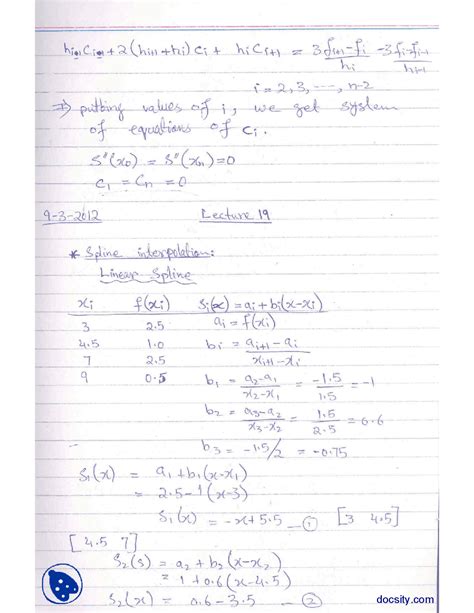 hi-1 Ci-1 + 2(hi-1 + hi) Ci + hi Ci+1 = 3 fi+1 - fi / hi - 3 fi - fi-1 / hi-1
i = 2, 3, ---, n-2
⇒ putting values of i, we get system
of equations of Ci.
S''(x0) = S''(xn) = 0
C1 = Cn = 0
9-3-2012 Lecture 19
* Spline interpolation:
Linear Spline
xi f(xi) Si(x) = ai + bi(x-xi)
3 2.5 ai = f(xi)
4.5 1.0 bi = ai+1 - ai / xi+1 - xi
7 2.5
9 0.5 b1 = a2-a1 / x2-x1 = -1.5 / 1.5 = -1
b2 = a3-a2 / x3-x2 = 1.5 / 2.5 = 0.6
b3 = -1.5/2 = -0.75
S1(x) = a1 + b1(x-x1)
= 2.5 - 1(x-3)
S1(x) = -x+5.5 — ① [3 4.5]
[4.5 7]
S2(s) = a2 + b2(x-x2)
= 1 + 0.6(x-4.5)
S2(x) = 0.6 - 3.5 — ②
docsity.com